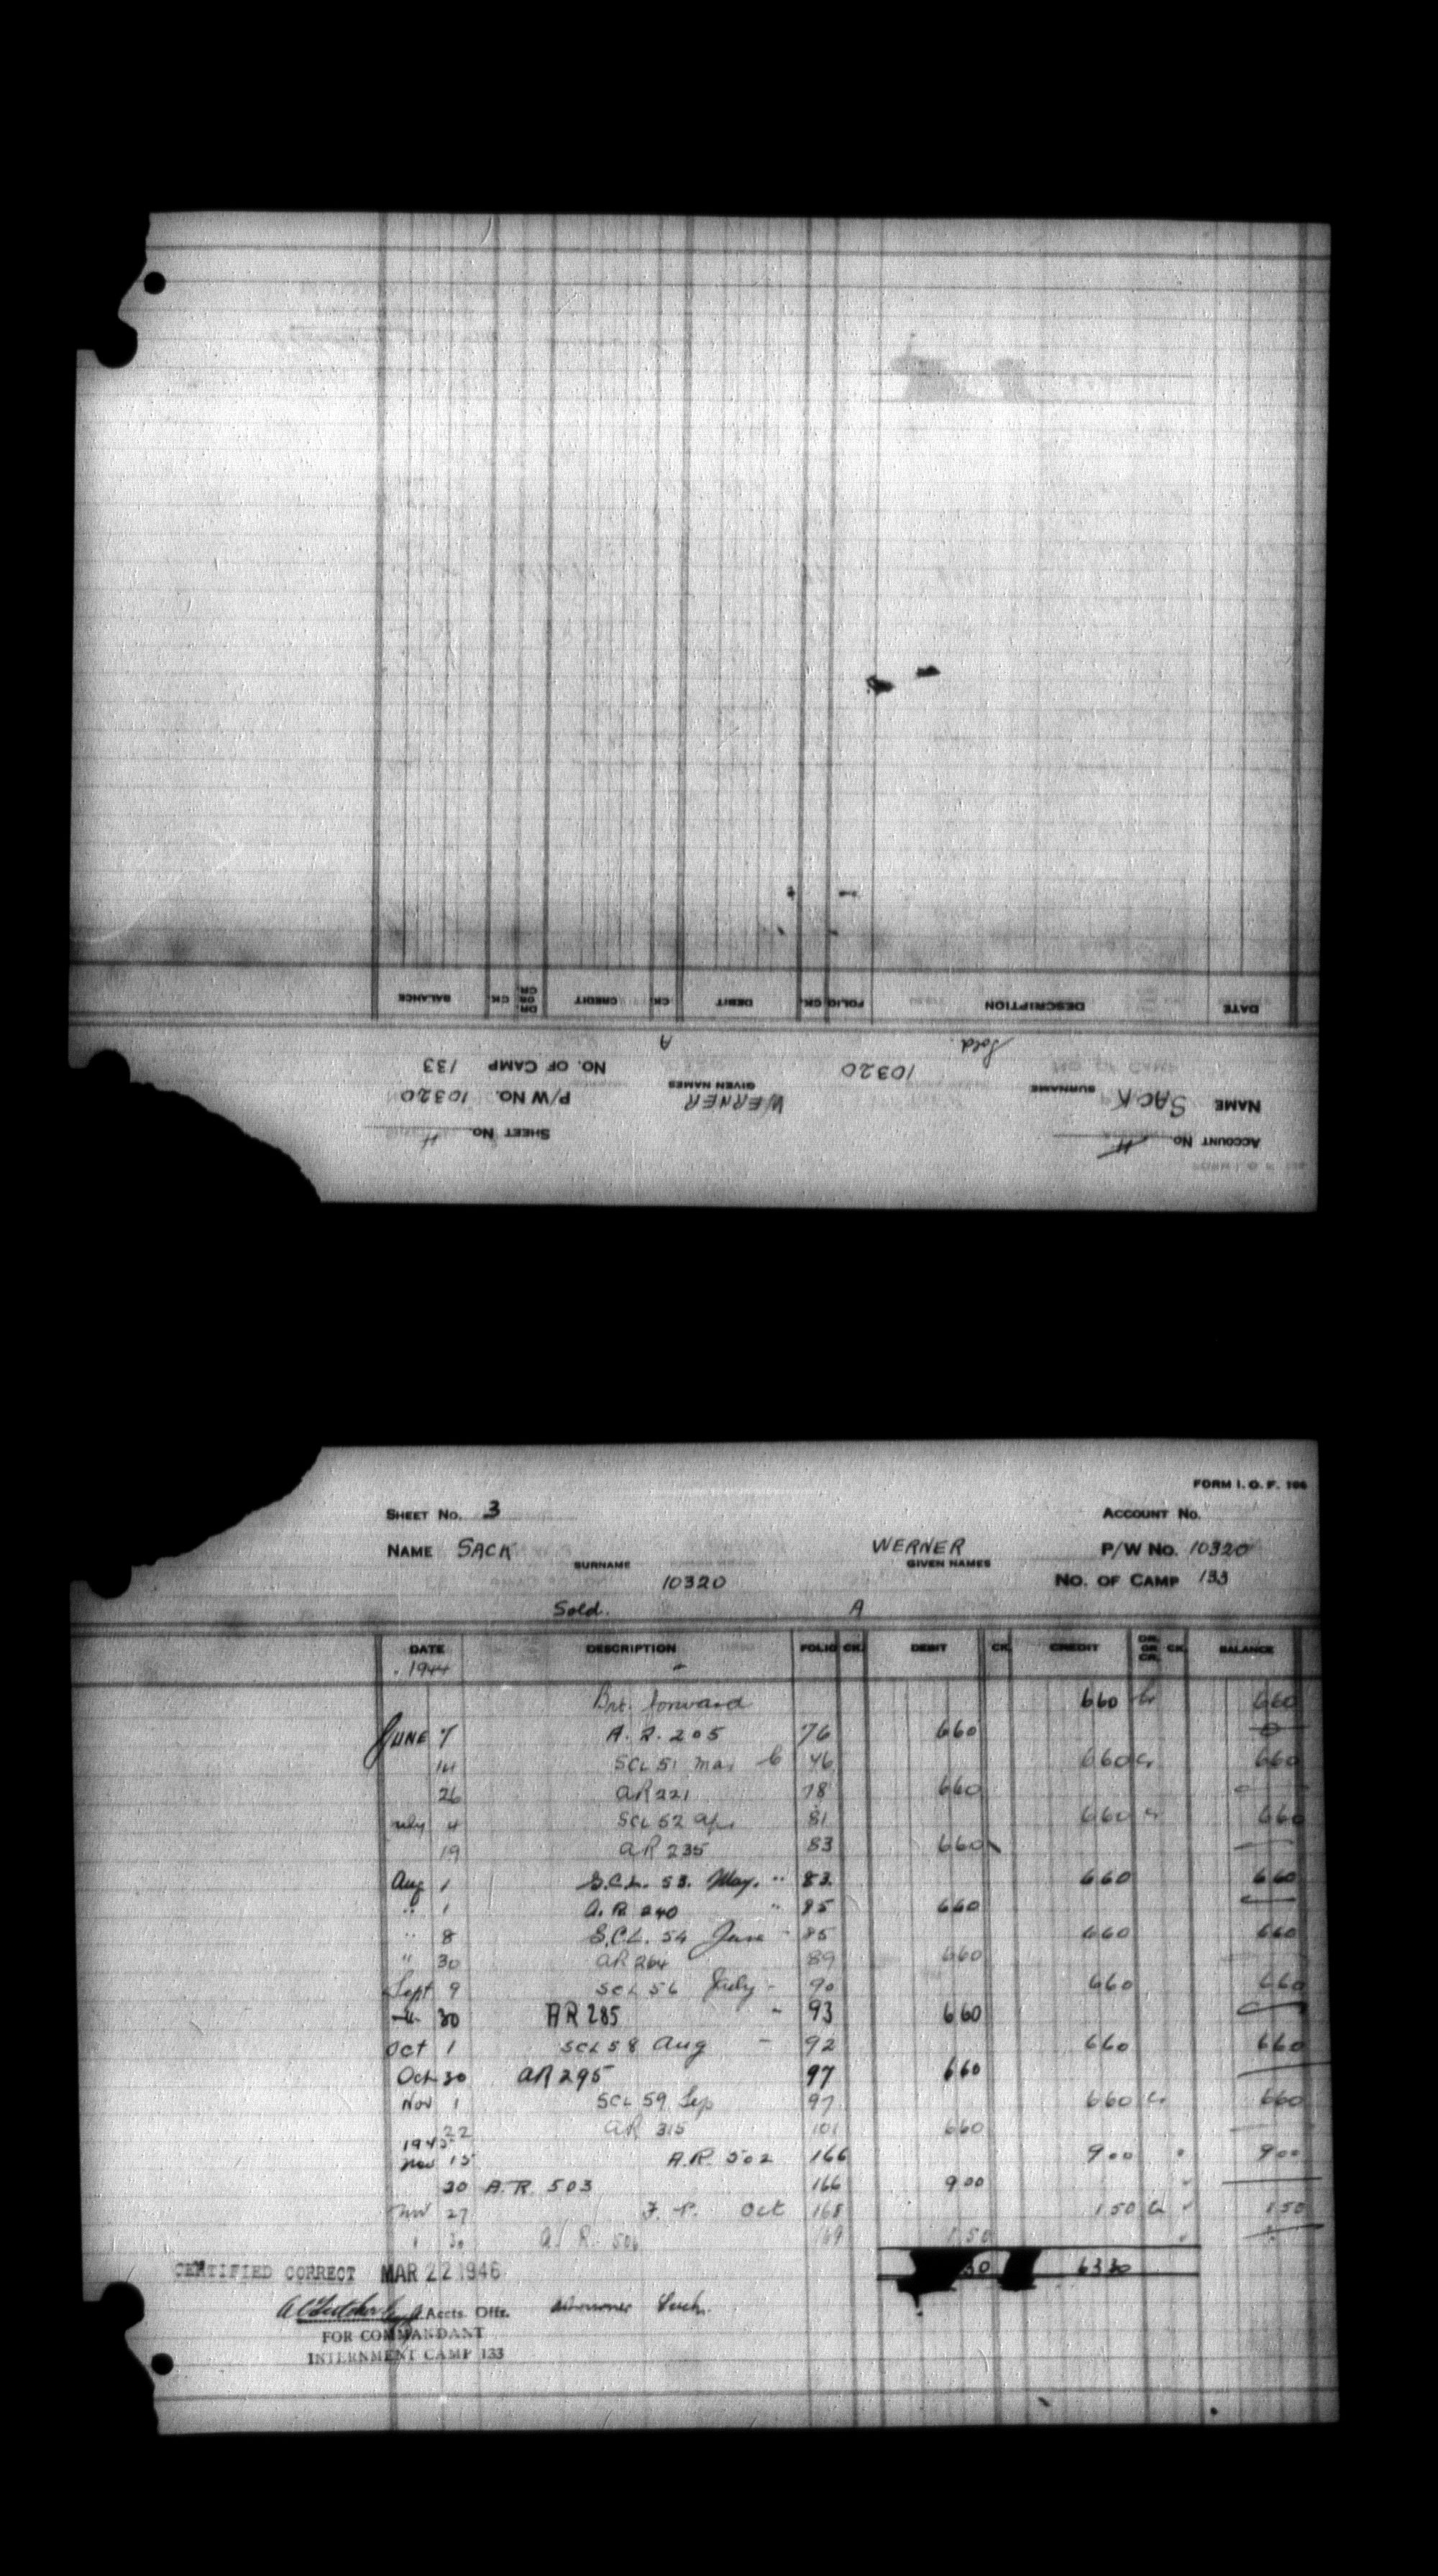 FORM I. O. F. 106
ACCOUNT No. 4 SHEET No. 4
NAME SACK SURNAME WERNER GIVEN NAMES P/W No. 10320
10320 NO. OF CAMP 133
Sold. A
DATE DESCRIPTION FOLIO CK. DEBIT CK. CREDIT DR. OR CR. CK. BALANCE
FORM I. O. F. 106
SHEET No. 3 ACCOUNT No.
NAME SACK SURNAME WERNER GIVEN NAMES P/W No. 10320
10320 NO. OF CAMP 133
Sold. A
DATE DESCRIPTION FOLIO CK. DEBIT CK. CREDIT DR. OR CR. CK. BALANCE
1944
Brt. forward 660 Cr 660
JUNE 7 A. R. 205 76 660 0
14 SCL 51 Mar 76 660 Cr 660
26 AR 221 78 660
July 4 SCL 52 Apr 81 660 Cr 660
19 AR 235 83 660
Aug 1 S.C.L. 53. May. " 83 660 660
" 1 A. R 240 " 85 660
" 8 S.C.L. 54 June 85 660 660
" 30 AR 264 89 660
Sept 9 SCL 56 July - 90 660 660
" 30 AR 285 - 93 660
Oct 1 SCL 58 Aug - 92 660 660
Oct 30 AR 295 97 660
Nov 1 SCL 59 Sep 97 660 Cr 660
22 AR 315 101 660
1945
Nov 15 A.R. 502 166 900 900
20 A.R. 503 166 900
Nov 27 F. P. Oct 168 150 Cr 150
30 A. R. 506 169 150
30 6330
CERTIFIED CORRECT MAR 22 1946
Accts. Offr.
FOR COMMANDANT
INTERNMENT CAMP 133